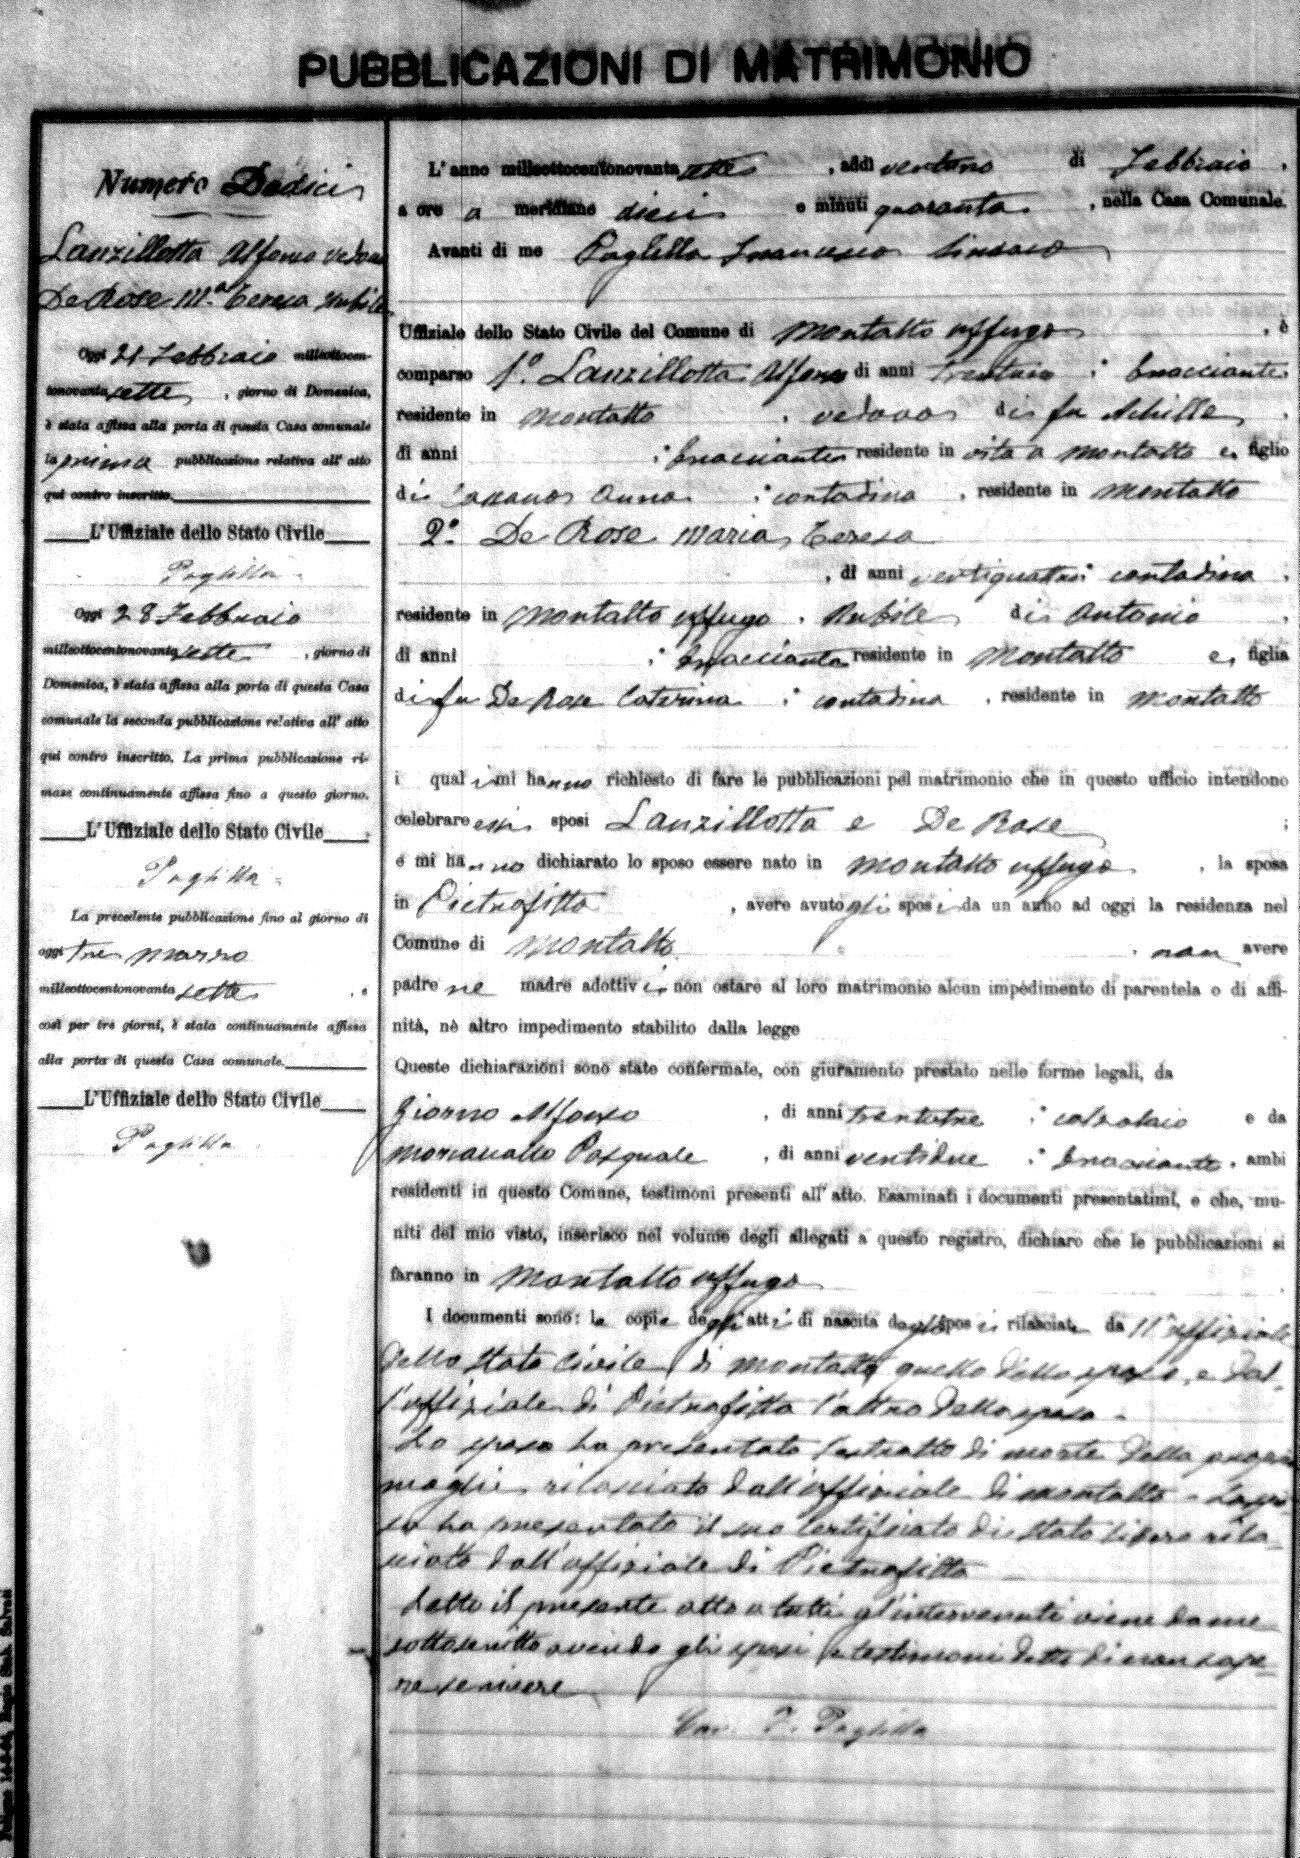 PUBBLICAZIONI DI MATRIMONIO
Numero Dodici
Lanzillotta Alfonso vedovo
De Rose M.a Teresa nubile
Oggi 21 Febbraio milleottocen-
tonovantasette, giorno di Domenica,
è stata affissa alla porta di questa Casa comunale
la prima pubblicazione relativa all' atto
qui contro inscritto.
L'Uffiziale dello Stato Civile
Paglilla
Oggi 28 Febbraio
milleottocentonovantasette, giorno di
Domenica, è stata affissa alla porta di questa Casa
comunale la seconda pubblicazione relativa all' atto
qui contro inscritto. La prima pubblicazione ri-
mase continuamente affissa fino a questo giorno.
L'Uffiziale dello Stato Civile
Paglilla
La precedente pubblicazione fino al giorno di
oggi tre marzo
milleottocentonovantasette, e
così per tre giorni, è stata continuamente affissa
alla porta di questa Casa comunale.
L'Uffiziale dello Stato Civile
Paglilla
L' anno milleottocentonovantasette, addì ventuno di Febbraio,
a ore a meridiane dieci e minuti quaranta, nella Casa Comunale.
Avanti di me Paglilla Francesco Sindaco
Uffiziale dello Stato Civile del Comune di Montalto Uffugo, è
comparso 1.o Lanzillotta Alfonso di anni trentuno; bracciante
residente in Montalto, vedovo di fu Achille,
di anni ; bracciante residente in vita a Montalto e, figlio
di Anna; contadina, residente in Montalto
2.o De Rose Maria Teresa
, di anni ventiquattro; contadina,
residente in Montalto Uffugo, nubile di Antonio,
di anni ; bracciante residente in Montalto e, figlia
di fu De Rose Caterina; contadina, residente in Montalto
i quali mi hanno richiesto di fare le pubblicazioni pel matrimonio che in questo ufficio intendono
celebrare essi sposi Lanzillotta e De Rose;
e mi hanno dichiarato lo sposo essere nato in Montalto Uffugo, la sposa
in Pietrafitta, avere avuto gli sposi da un anno ad oggi la residenza nel
Comune di Montalto, non avere
padre ne madre adottivi non ostare al loro matrimonio alcun impedimento di parentela o di affi-
nità, nè altro impedimento stabilito dalla legge
Queste dichiarazioni sono state confermate, con giuramento prestato nelle forme legali, da
Giorno Alfonso, di anni trentatre; calzolaio e da
Pasquale, di anni ventidue; bracciante, ambi
residenti in questo Comune, testimoni presenti all' atto. Esaminati i documenti presentatimi, e che, mu-
niti del mio visto, inserisco nel volume degli allegati a questo registro, dichiaro che le pubblicazioni si
faranno in Montalto Uffugo
I documenti sono: le copie degli atti di nascita degli sposi rilasciate da ll'uffiziale
dello stato civile di Montalto quello dello sposo, e dal-
l'uffiziale di Pietrafitta l'altro della sposa.
Lo sposo ha presentato l'estratto di morte della propria
moglie rilasciato dall'uffiziale di Montalto - La spo-
sa ha presentato il suo certificato di stato libero rila-
sciato dall'uffiziale di Pietrafitta
Letto il presente atto a tutti gl'intervenuti viene da me
sottoscritto avendo gli sposi e testimoni detto di non sape-
re scrivere
Cav. F. Paglilla